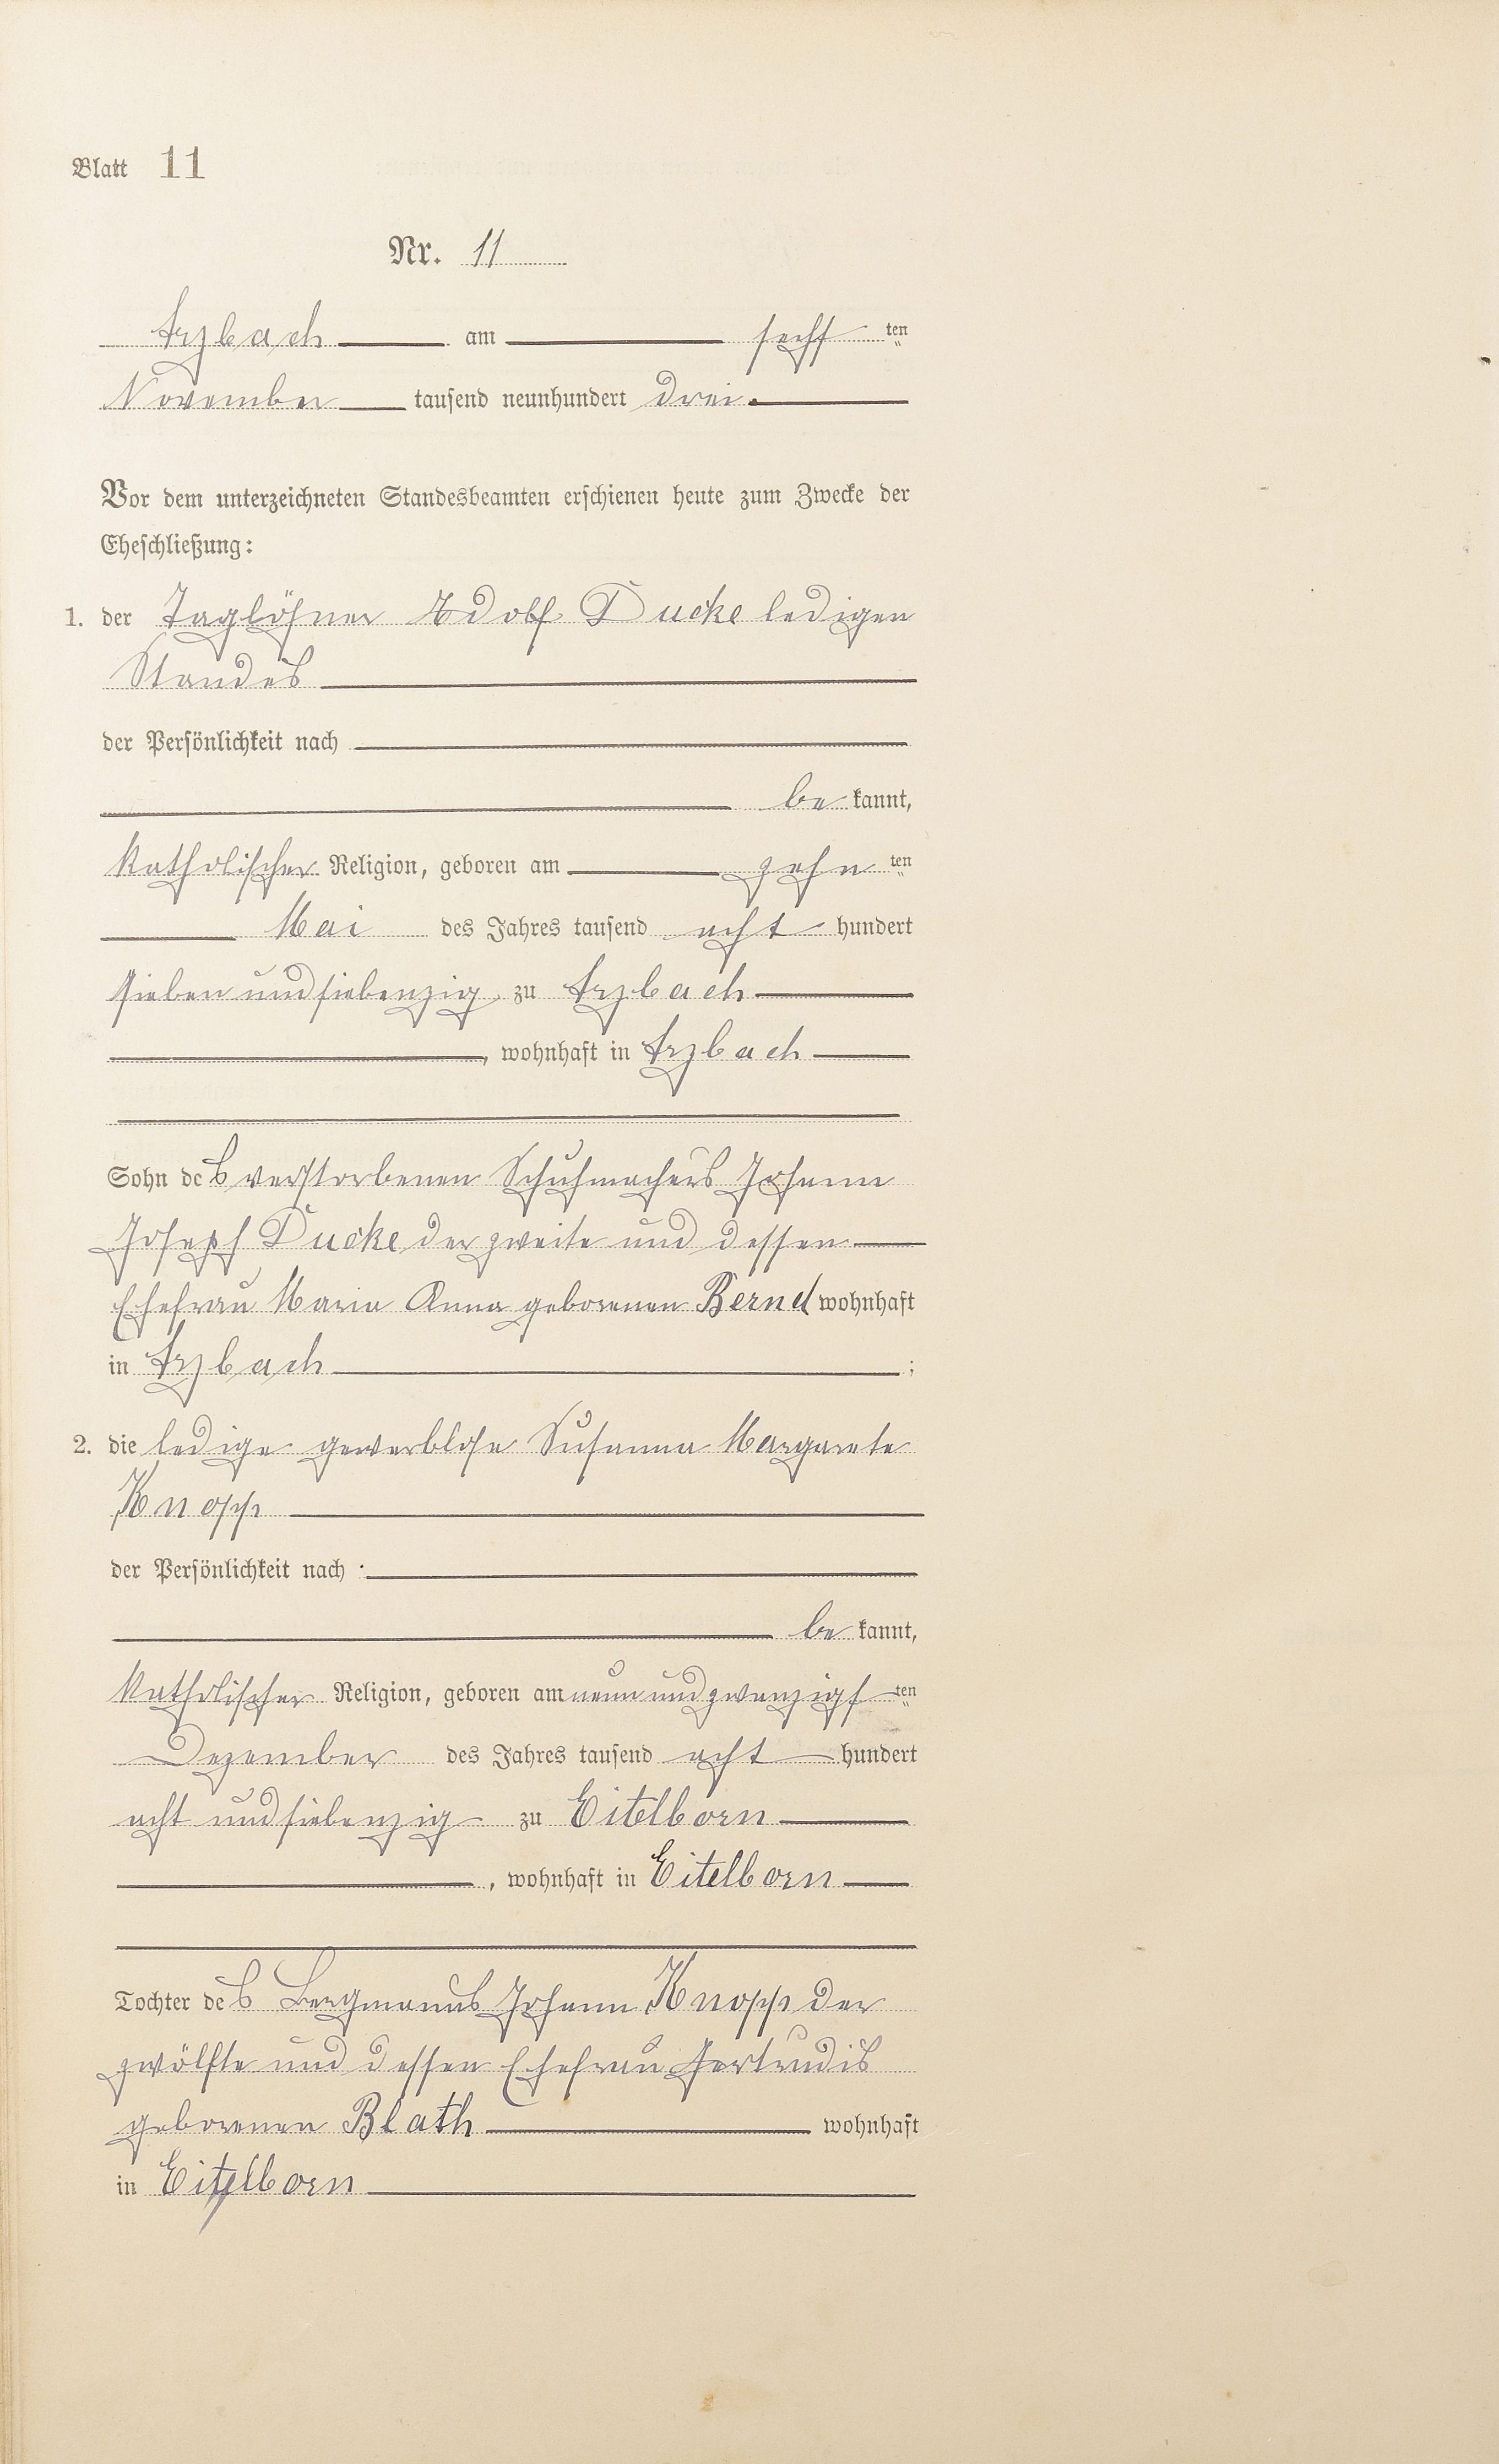 Blatt 11
Nr. 11
Arzbach am sechsten
November tausend neunhundert drei.
Vor dem unterzeichneten Standesbeamten erschienen heute zum Zwecke der
Eheschließung:
1. der Taglöhner Adolf Ducke ledigen
Standes
der Persönlichkeit nach
bekannt,
katholischer Religion, geboren am zehnten
Mai des Jahres tausend achthundert
sieben und siebenzig zu Arzbach
, wohnhaft in Arzbach
Sohn des verstorbenen Schuhmachers Johann
Joseph Ducke der zweite und dessen
Ehefrau Maria Anna geborenen Bernd wohnhaft
in Arzbach ;
2. die ledige gewerblose Susanna Margarete
Knopp
der Persönlichkeit nach
bekannt,
katholischer Religion, geboren am neun und zwanzigsten
Dezember des Jahres tausend achthundert
acht und siebenzig zu Eitelborn
, wohnhaft in Eitelborn
Tochter des Bergmanns Johann Knopp der
zwölfte und dessen Ehefrau Gertrudis
geborenen Blath wohnhaft
in Eitelborn